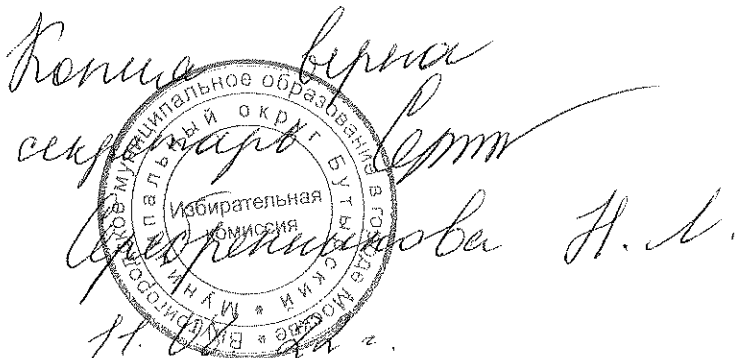 Копия верна
секретарь
Н. Л.
Внутригородское муниципальное образование в городе Москве
Муниципальный округ Бутырский
Избирательная
комиссия
22 г.